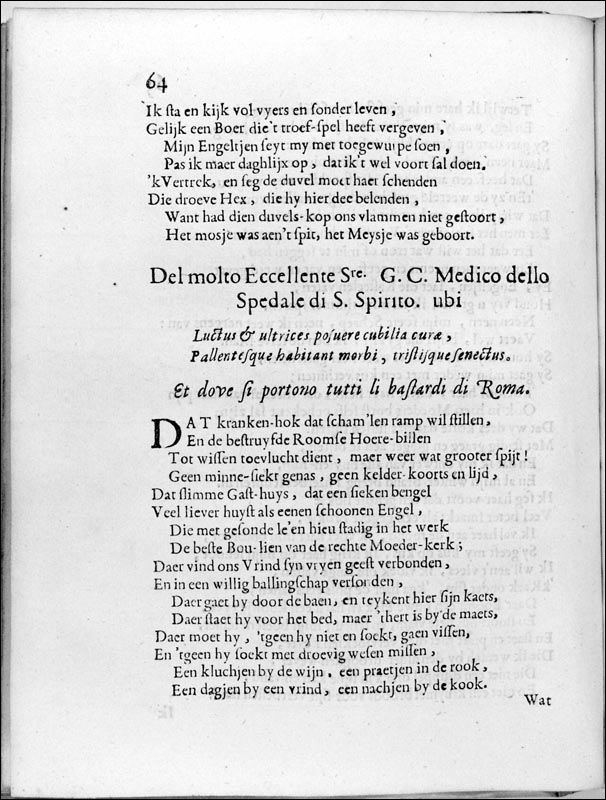 64
'Ik sta en kijk vol vyers en sonder leven,
Gelijk een Boer die't troef-spel heeft vergeven,
Mijn Engeltjen seyt my met toegewurpe soen,
Pas ik maer daghlijx op, dat ik't wel voort sal doen.
'k Vertrek, en seg de duvel moet haer schenden
Die droeve Hex, die hy hier dee belenden,
Want had dien duvels-kop ons vlammen niet gestoort,
Het mosje was aen't spit, het Meysje was geboort.
Del molto Eccellente Sre. G. C. Medico dello
Spedale di S. Spirito. ubi
Luctus & ultrices posuere cubilia curæ,
Pallentesque habitant morbi, tristisque senectus.
Et dove si portono tutti li bastardi di Roma.
DAT kranken-hok dat scham'len ramp wil stillen,
En de bestruyfde Roomse Hoere-billen
Tot wissen toevlucht dient, maer weer wat grooter spijt!
Geen minne-siekt genas, geen kelder-koorts en lijd,
Dat slimme Gast-huys, dat een sieken bengel
Veel liever huyst als eenen schoonen Engel,
Die met gesonde le'en hieu stadig in het werk
De beste Bou-lien van de rechte Moeder-kerk;
Daer vind ons Vrind syn vryen geest verbonden,
En in een willig ballingschap versonden,
Daer gaet hy door de baen, en teykent hier sijn kaets,
Daer staet hy voor het bed, maer 'thert is by de maets,
Daer moet hy, 'tgeen hy niet en soekt, gaen vissen,
En 'tgeen hy soekt met droevig wesen missen,
Een kluchjen by de wijn, een praetjen in de rook,
Een dagjen by een vrind, een nachjen by de kook.
Wat